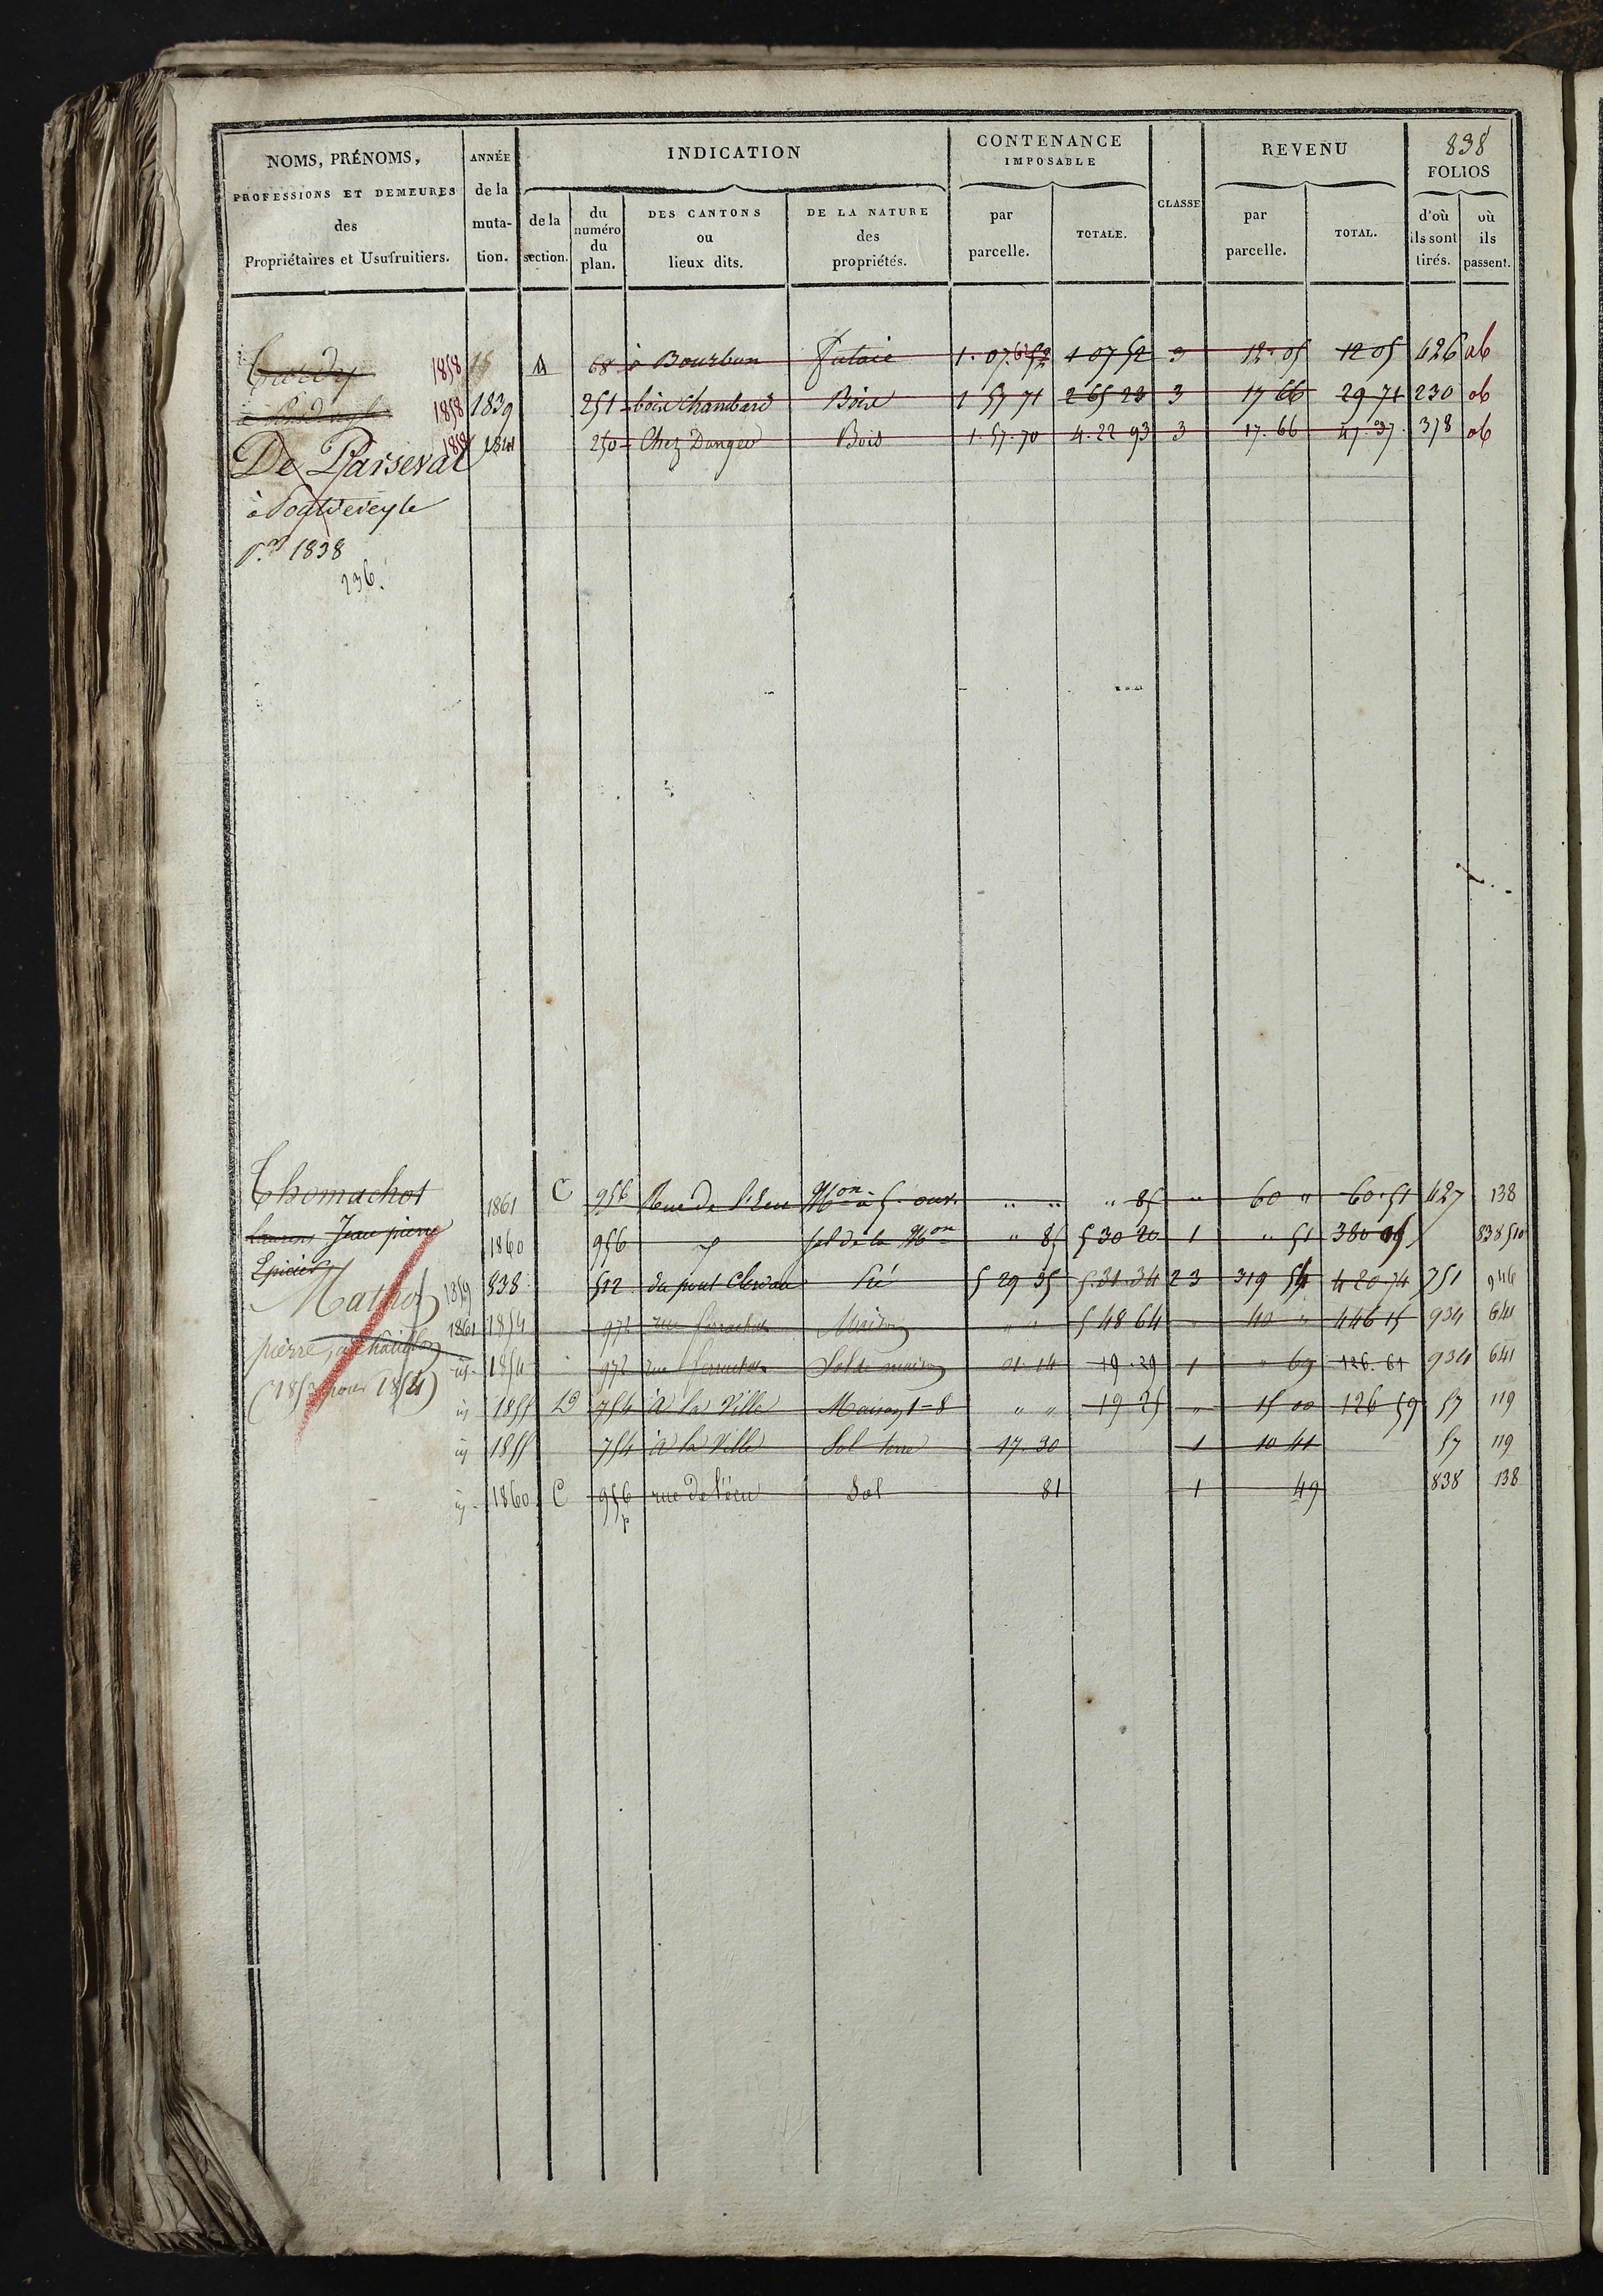 838
NOMS, PRÉNOMS, PROFESSIONS ET DEMEURES des Propriétaires et Usufruitiers.
ANNÉE de la muta-tion.
INDICATION
de la section.
du numéro du plan.
DES CANTONS ou lieux dits.
DE LA NATURE des propriétés.
CONTENANCE IMPOSABLE
par parcelle.
TOTALE.
CLASSE
REVENU
par parcelle.
TOTAL.
FOLIOS
d'où ils sont tirés.
où ils passent.
1858 A 68 à Bourbon futaie 1. 07. 52 1 07 52 3 12. 05 12 05 426 ab
1858 1839 251 bois Chambard Bois 1 57 71 2 65 23 3 17 66 29 71 230 ab
De Parseval 1858 1841 250 Chez Danger Bois 1. 57. 70 4. 22 93 3 17. 66 47. 37 378 ab
à
pr. 1838
236.
Thomachot 1861 C 956 Rue de l'Ecu Mon à 5 ouv. " " " 85 " 60 " 60. 51 427 138
Jean pierre 1860 956 sol de la Mon " 85 5 30 20 1 " 51 380 05 838 510
Epicier 838 512 du pont Pré 5 29 35 5. 31. 34 2 3 319 54 420 74 751 946
Mathet 1859
1861 1854 972 rue Maison " " 5 48 64 " 40 " 446 15 934 641
pierre, à Châtillon
id. 1854 972 rue Sol de maison 01. 14 19. 29 1 " 69 126. 61 934 641
(1853 pour 1854)
id 1855 D 754 à la Ville Maison 1=8 " " 19 25 " 15 00 126 59 57 119
id 1855 754 à la Ville Sol terre 17. 30 1 10 41 57 119
id. 1860 C 956 p rue de l'écu Sol 81 1 49 838 138